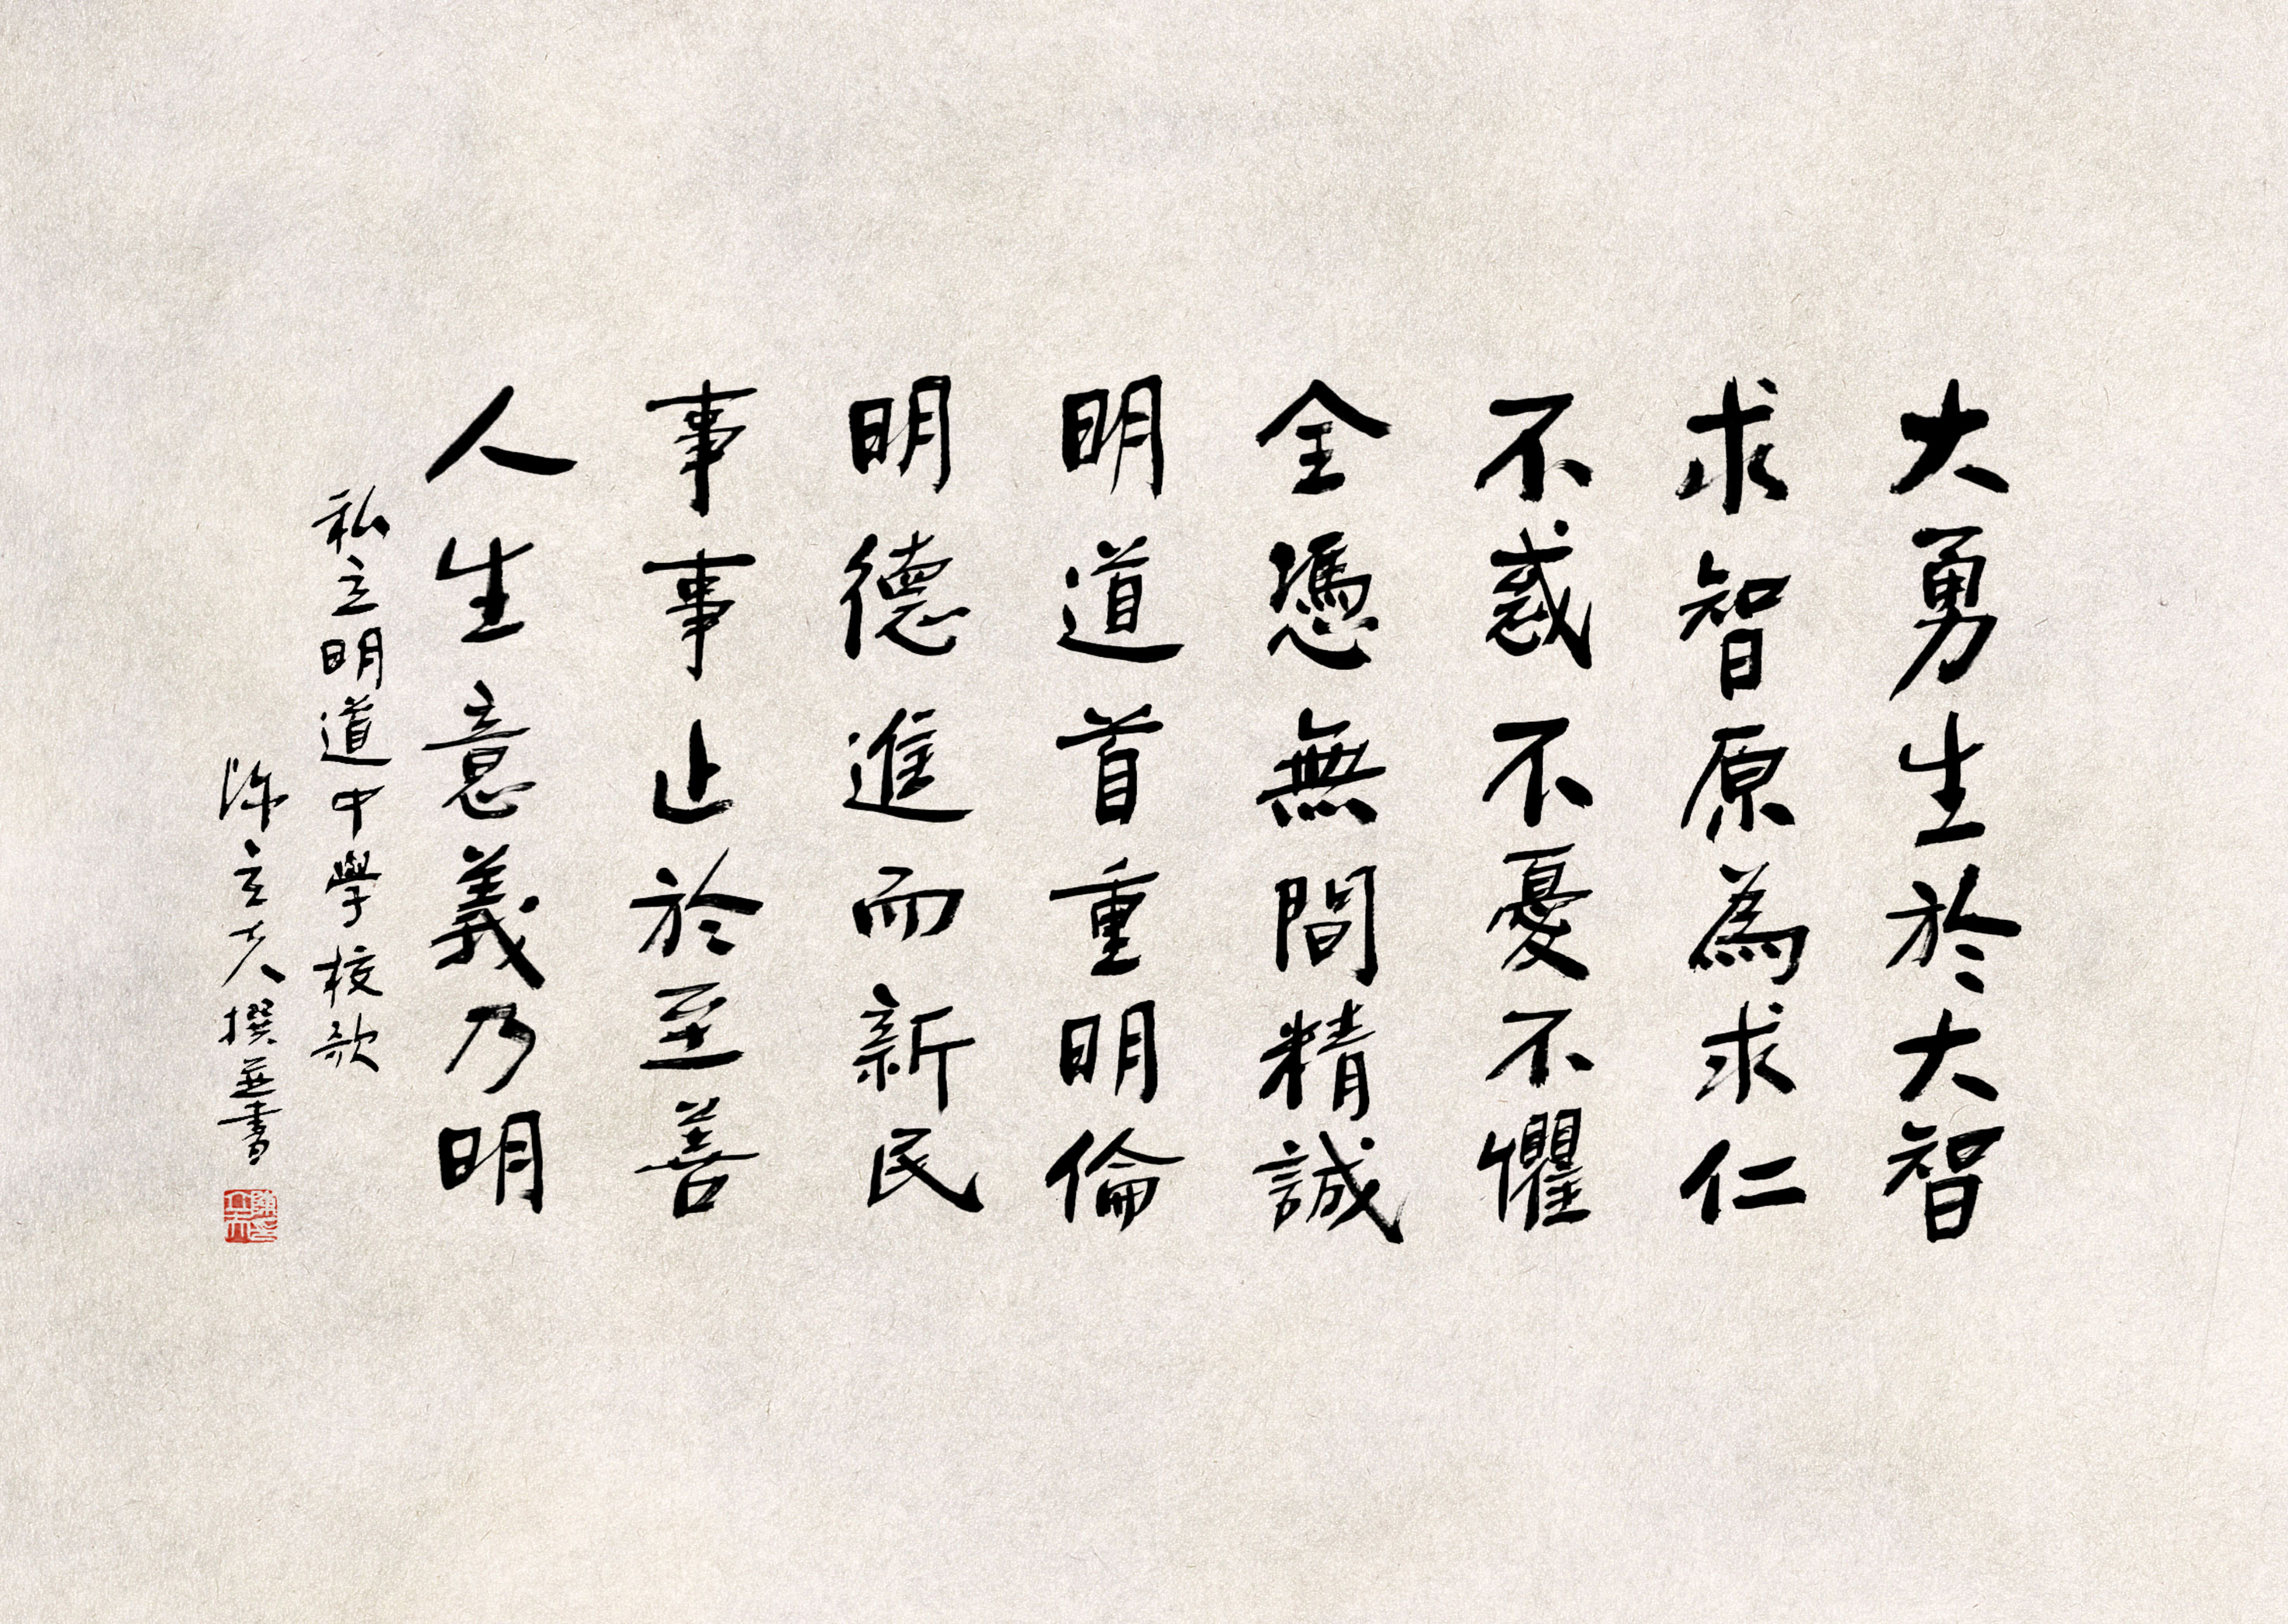 大勇生於大智
求智原為求仁
不惑不憂不懼
全憑無間精誠
明道首重明倫
明德進而新民
事事止於至善
人生意義乃明
私立明道中學校歌
陳立夫撰並書